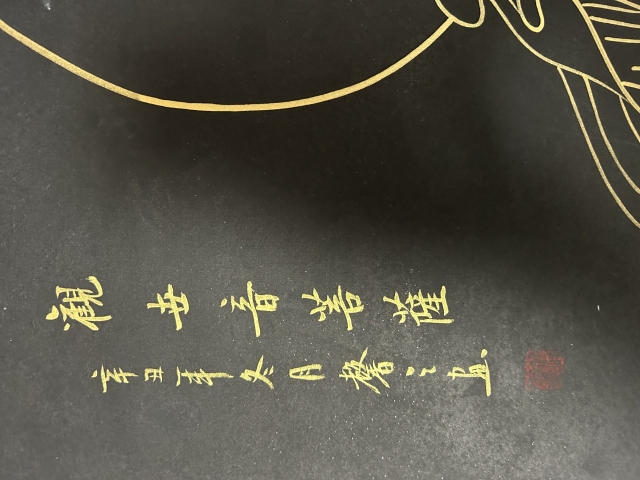 觀世音菩薩
辛丑年冬月馨之